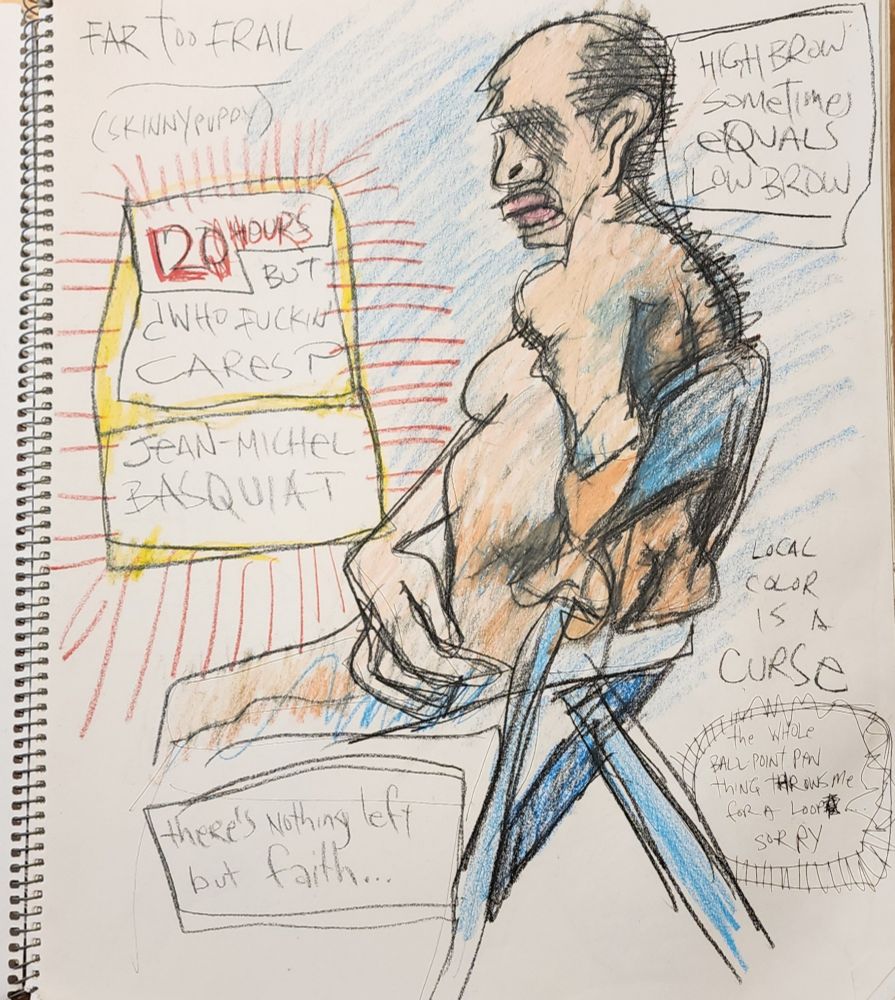 FAR TOO FRAIL
(SKINNYPUPPY)
120 HOURS
BUT
¿WHO FUCKIN'
CARES?
JEAN-MICHEL
BASQUIAT
HIGH BROW
Sometimes
EQUALS
LOW BROW
LOCAL
COLOR
IS A
CURSE
the WHOLE
BALL POINT PAN
THING THROWS ME
FOR A LOOP
SORRY
there's Nothing left
but faith...